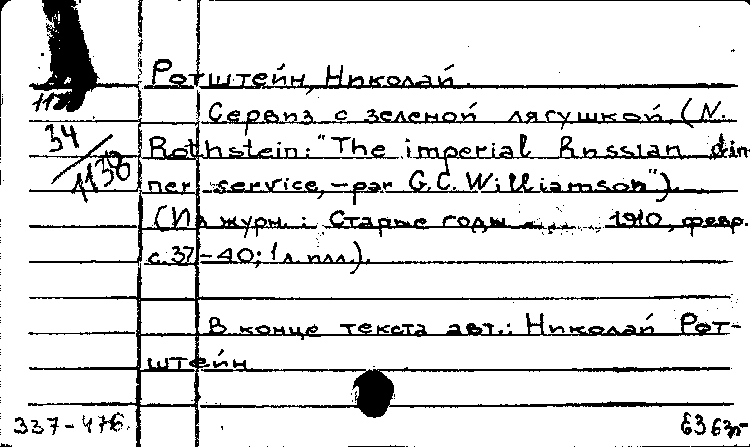 Ротштейн, Николай.
Сервиз с зеленой лягушкой. (N.
34
Rothstein: "The imperial Russian din-
1138
ner service, - par G.C. Williamson").
(Из журн.: Старые годы ..., 1910, февр.
с. 37-40; 1 л. илл.).
В конце текста авт.: Николай Рот-
штейн
337-476.